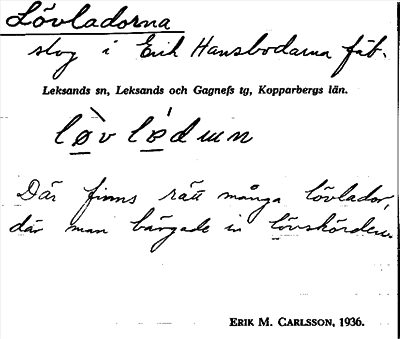 Lövladorna
skog i Erik Hansbodarna fäb.
Leksands sn, Leksands och Gagnefs tg, Kopparbergs län.
lø̀v lǿdɯn
Där finns rätt många lövlador,
där man bärgade in lövskörden.
ERIK M. CARLSSON, 1936.